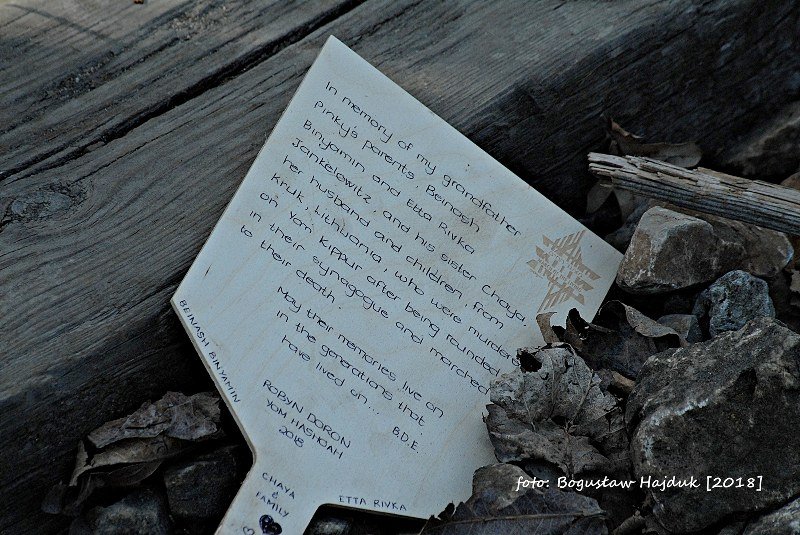 In memory of my grandfather
Pinky's parents, Beinash
Binyamin and Etta Rivka
Jankelowitz, and his sister Chaya
her husband and children, from
Kruk, Lithuania, who were murdered
on Yom Kippur after being rounded
in their synagogue and marched
to their death.
May their memories live on
in the generations that
have lived on... B.D.E.
ROBYN DORON
YOM HASHOAH
2018
BEINASH BINYAMIN
CHAYA
& FAMILY
ETTA RIVKA
foto: Bogusław Hajduk [2018]